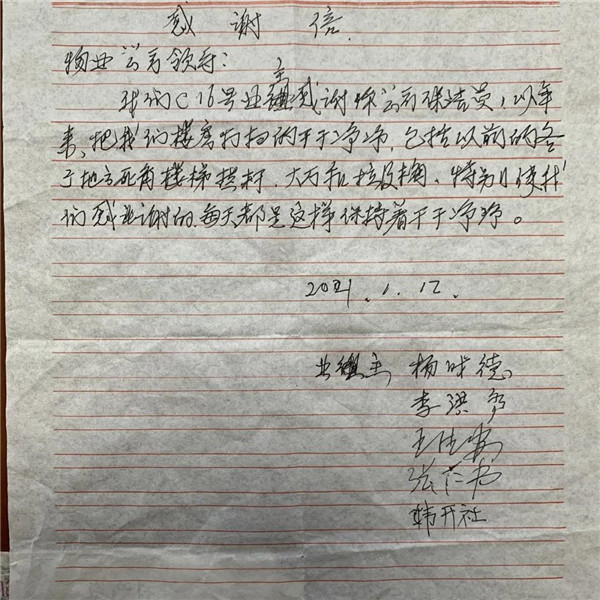 感谢信
物业公司领导:
我们C16号业主感谢你公司保洁员,以年
来,把我们楼层打扫的干干净净,包括以前的各
个地方死角楼梯扶杆、大门和垃圾桶、特别使我
们感谢的每天都是这样保持着干干净净。
2021.1.12.
业主 杨 德
李洪
王
张
韩开社